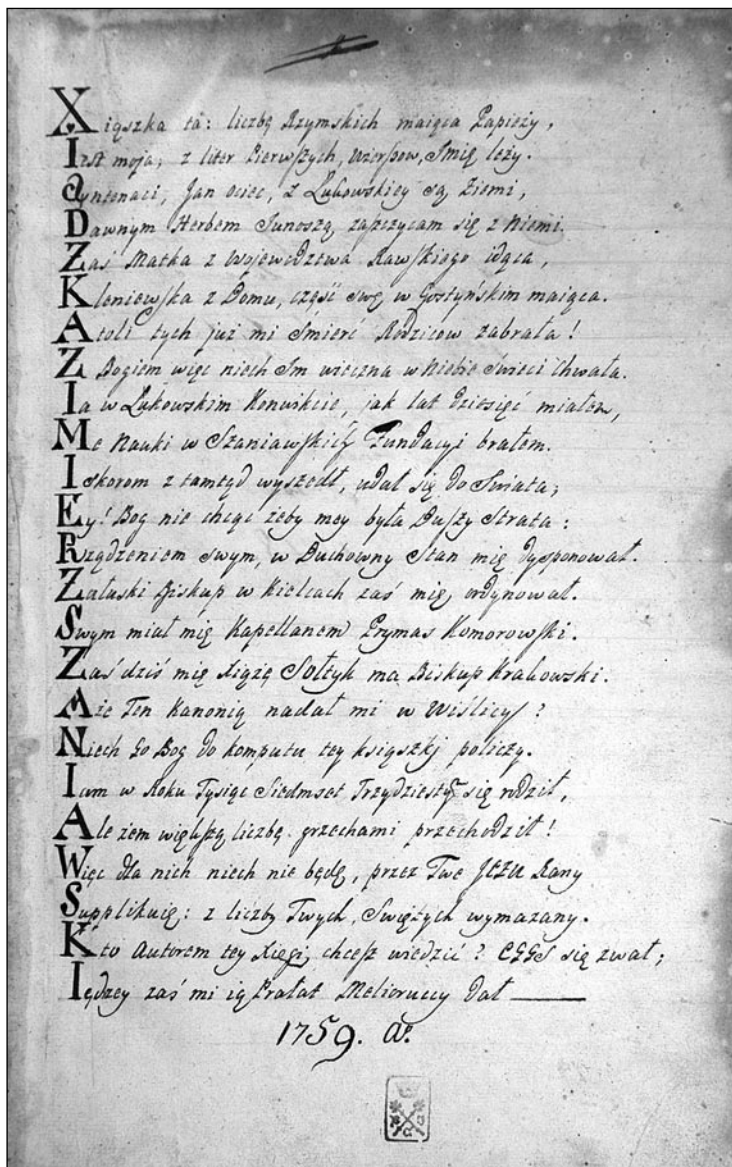 Xiąszka ta: liczbę Rzymskich maiąca Papieży,
Iest moja; z liter Pierwszych, wierszow, Imię leży.
Antenaci, Jan ociec, z Łukowskiey są Ziemi,
Dawnym Herbem Junoszą, zaszczycam się z Niemi.
Zaś Matka z Wojewodztwa Rawskiego idąca,
Kleniewska z Domu, część swą w Gostyńskim maiąca.
Atoli tych już mi Śmierć Rodzicow zabrała!
Z Bogiem więc niech Im wieczna w Niebie świeci Chwała.
Ia w Łukowskim Konwikcie, jak lat dziesięć miałem,
Me Nauki w Szaniawskich Fundacyi brałem.
I skorom z tamtąd wyszedł, udał się do Swiata;
Ey! Bog nie chcąc żeby mey była Duszy Strata:
Rządzeniem swym, w Duchowny Stan mię dysponował.
Załuski Biskup w Kielcach zaś mię ordynował.
Swym miał mię Kapellanem Prymas Komorowski.
Zaś dziś mię Xiążę Sołtyk ma Biskup Krakowski.
Aże Ten Kanonią nadał mi w Wiślicy?
Niech Go Bog do komputu tey książki policzy.
Iam w Roku Tysiąc Siedmset Trzydziesty się rodził,
Ale żem większą liczbę grzechami przechodził!
Więc dla nich niech nie będę, przez Twe JEZU Rany
Supplikuię: z liczby Twych Swiętych wymazany.
Kto Autorem tey Xięgi, chcesz wiedzić? EGGS się zwał;
Iędzey zaś mi ią Prałat Melioruccy Dał
1759. a.